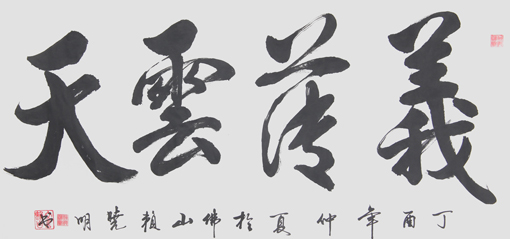 義薄雲天
丁酉年仲夏於佛山賴曉明书